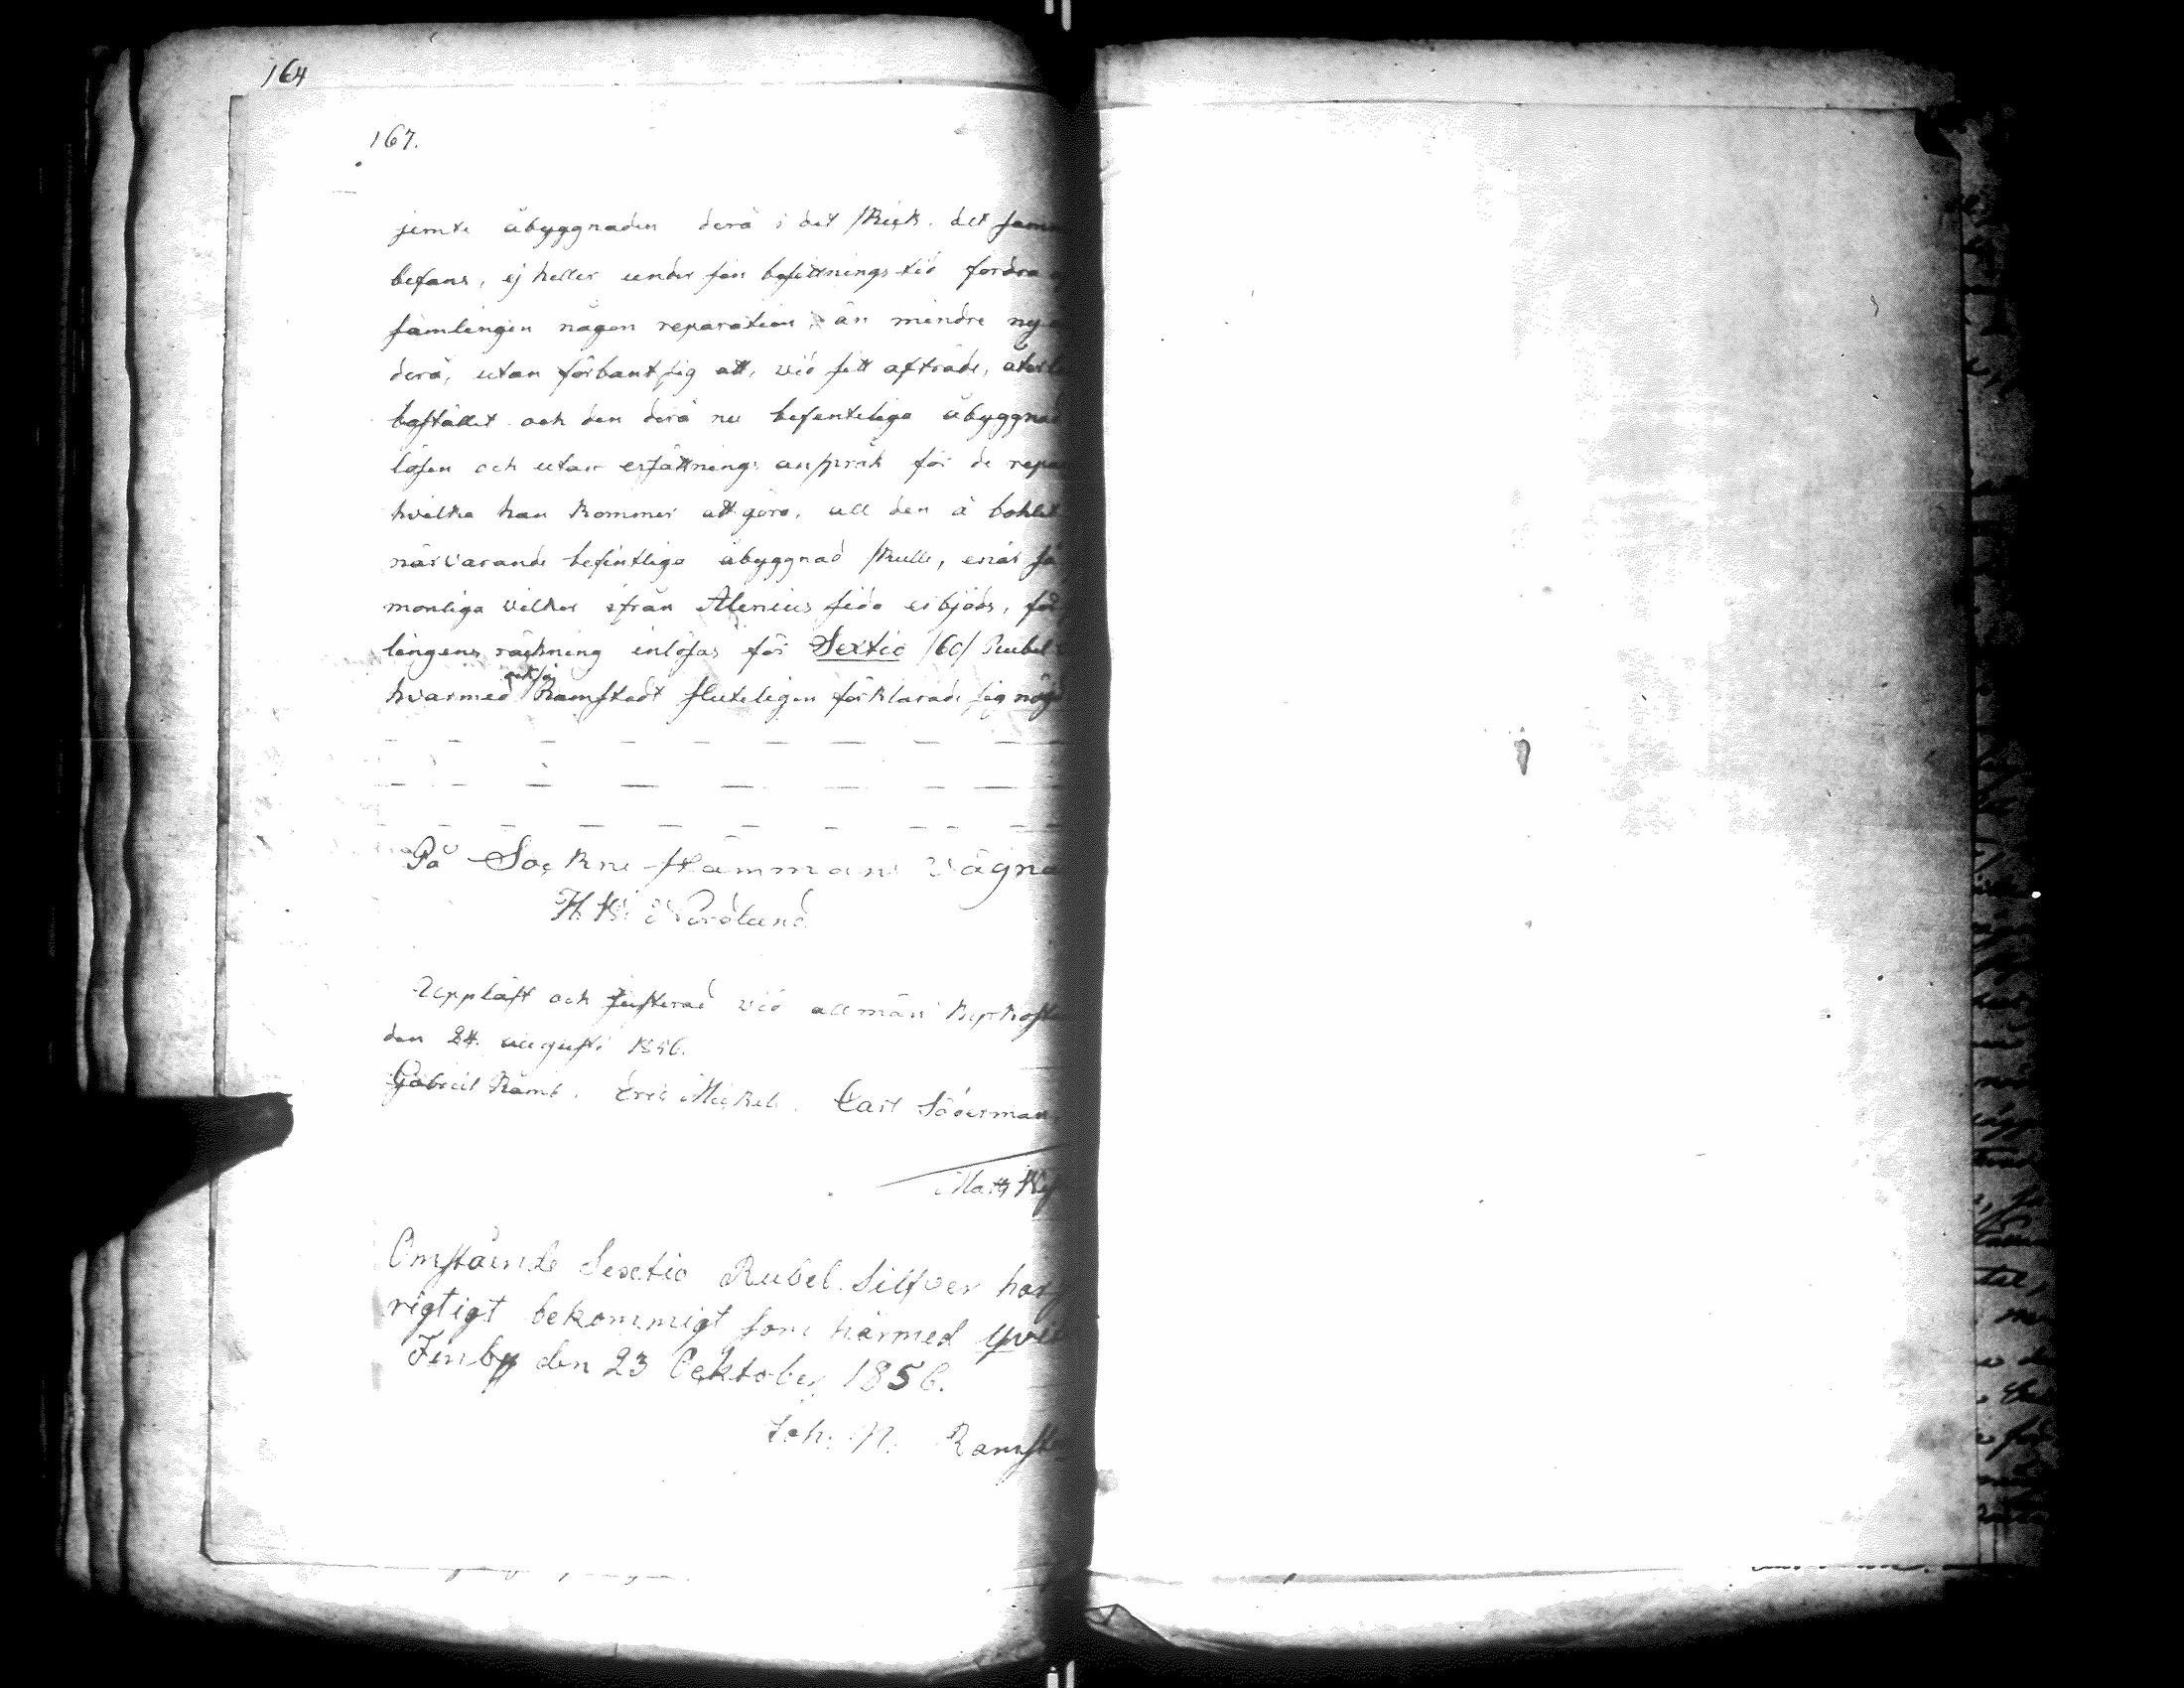 164
167.
jemte åbyggnaden derå i det skick, det samm
befans, ej heller under sin besittnings tid fordra a
samlingen någon reparation, än mindre ny
derå, utan förbant sig att, vid sitt afträde, återl
bostället och den derå nu befinteliga åbyggnad
lösen och utan ersättnings anspråk för de repa
hvilka han kommer att göra, all den å bohlet
närvarande befintliga åbyggnad skulle, enär så
monliga vilkor ifrån Alenius sida erbjöds, för
lingens räkning inlösas för Sextio /60/ Rubel
hvarmed också Ramstadt sluteligen förklarade sig nöjd
På Sockne stämmans vägna
H. K. Nordlund
Uppläst och justerad vid allmän kyrkostä
den 24. augusti 1856.
Gabriel Rams. Eric Mickels. Carl Söderman
Matts
Omstående Sextio Rubel Silfver har
rigtigt bekommigt som härmed qvit
Finby den 23 Ocktober 1856.
Joh: N. Ramsta